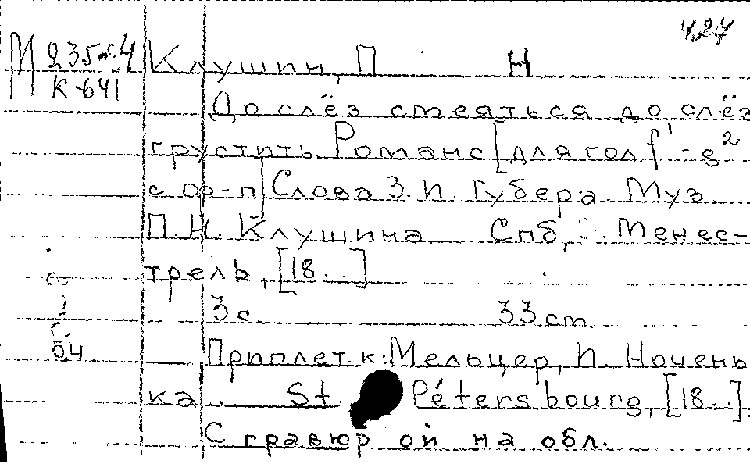 427
М 235-4 Клушин, П Н
К-641
До слёз смеяться до слёз
грустить Романс [для гол f¹-g²
с ф-п] Слова Э. И. Губера Муз
П. Н. Клушина Спб, Менес-
трель, [18...]
3 с. 33 cm
Приплет к: Мельцер, И. Ночень
54
ка St Pétersbourg, [18...].
С гравюр ой на обл.